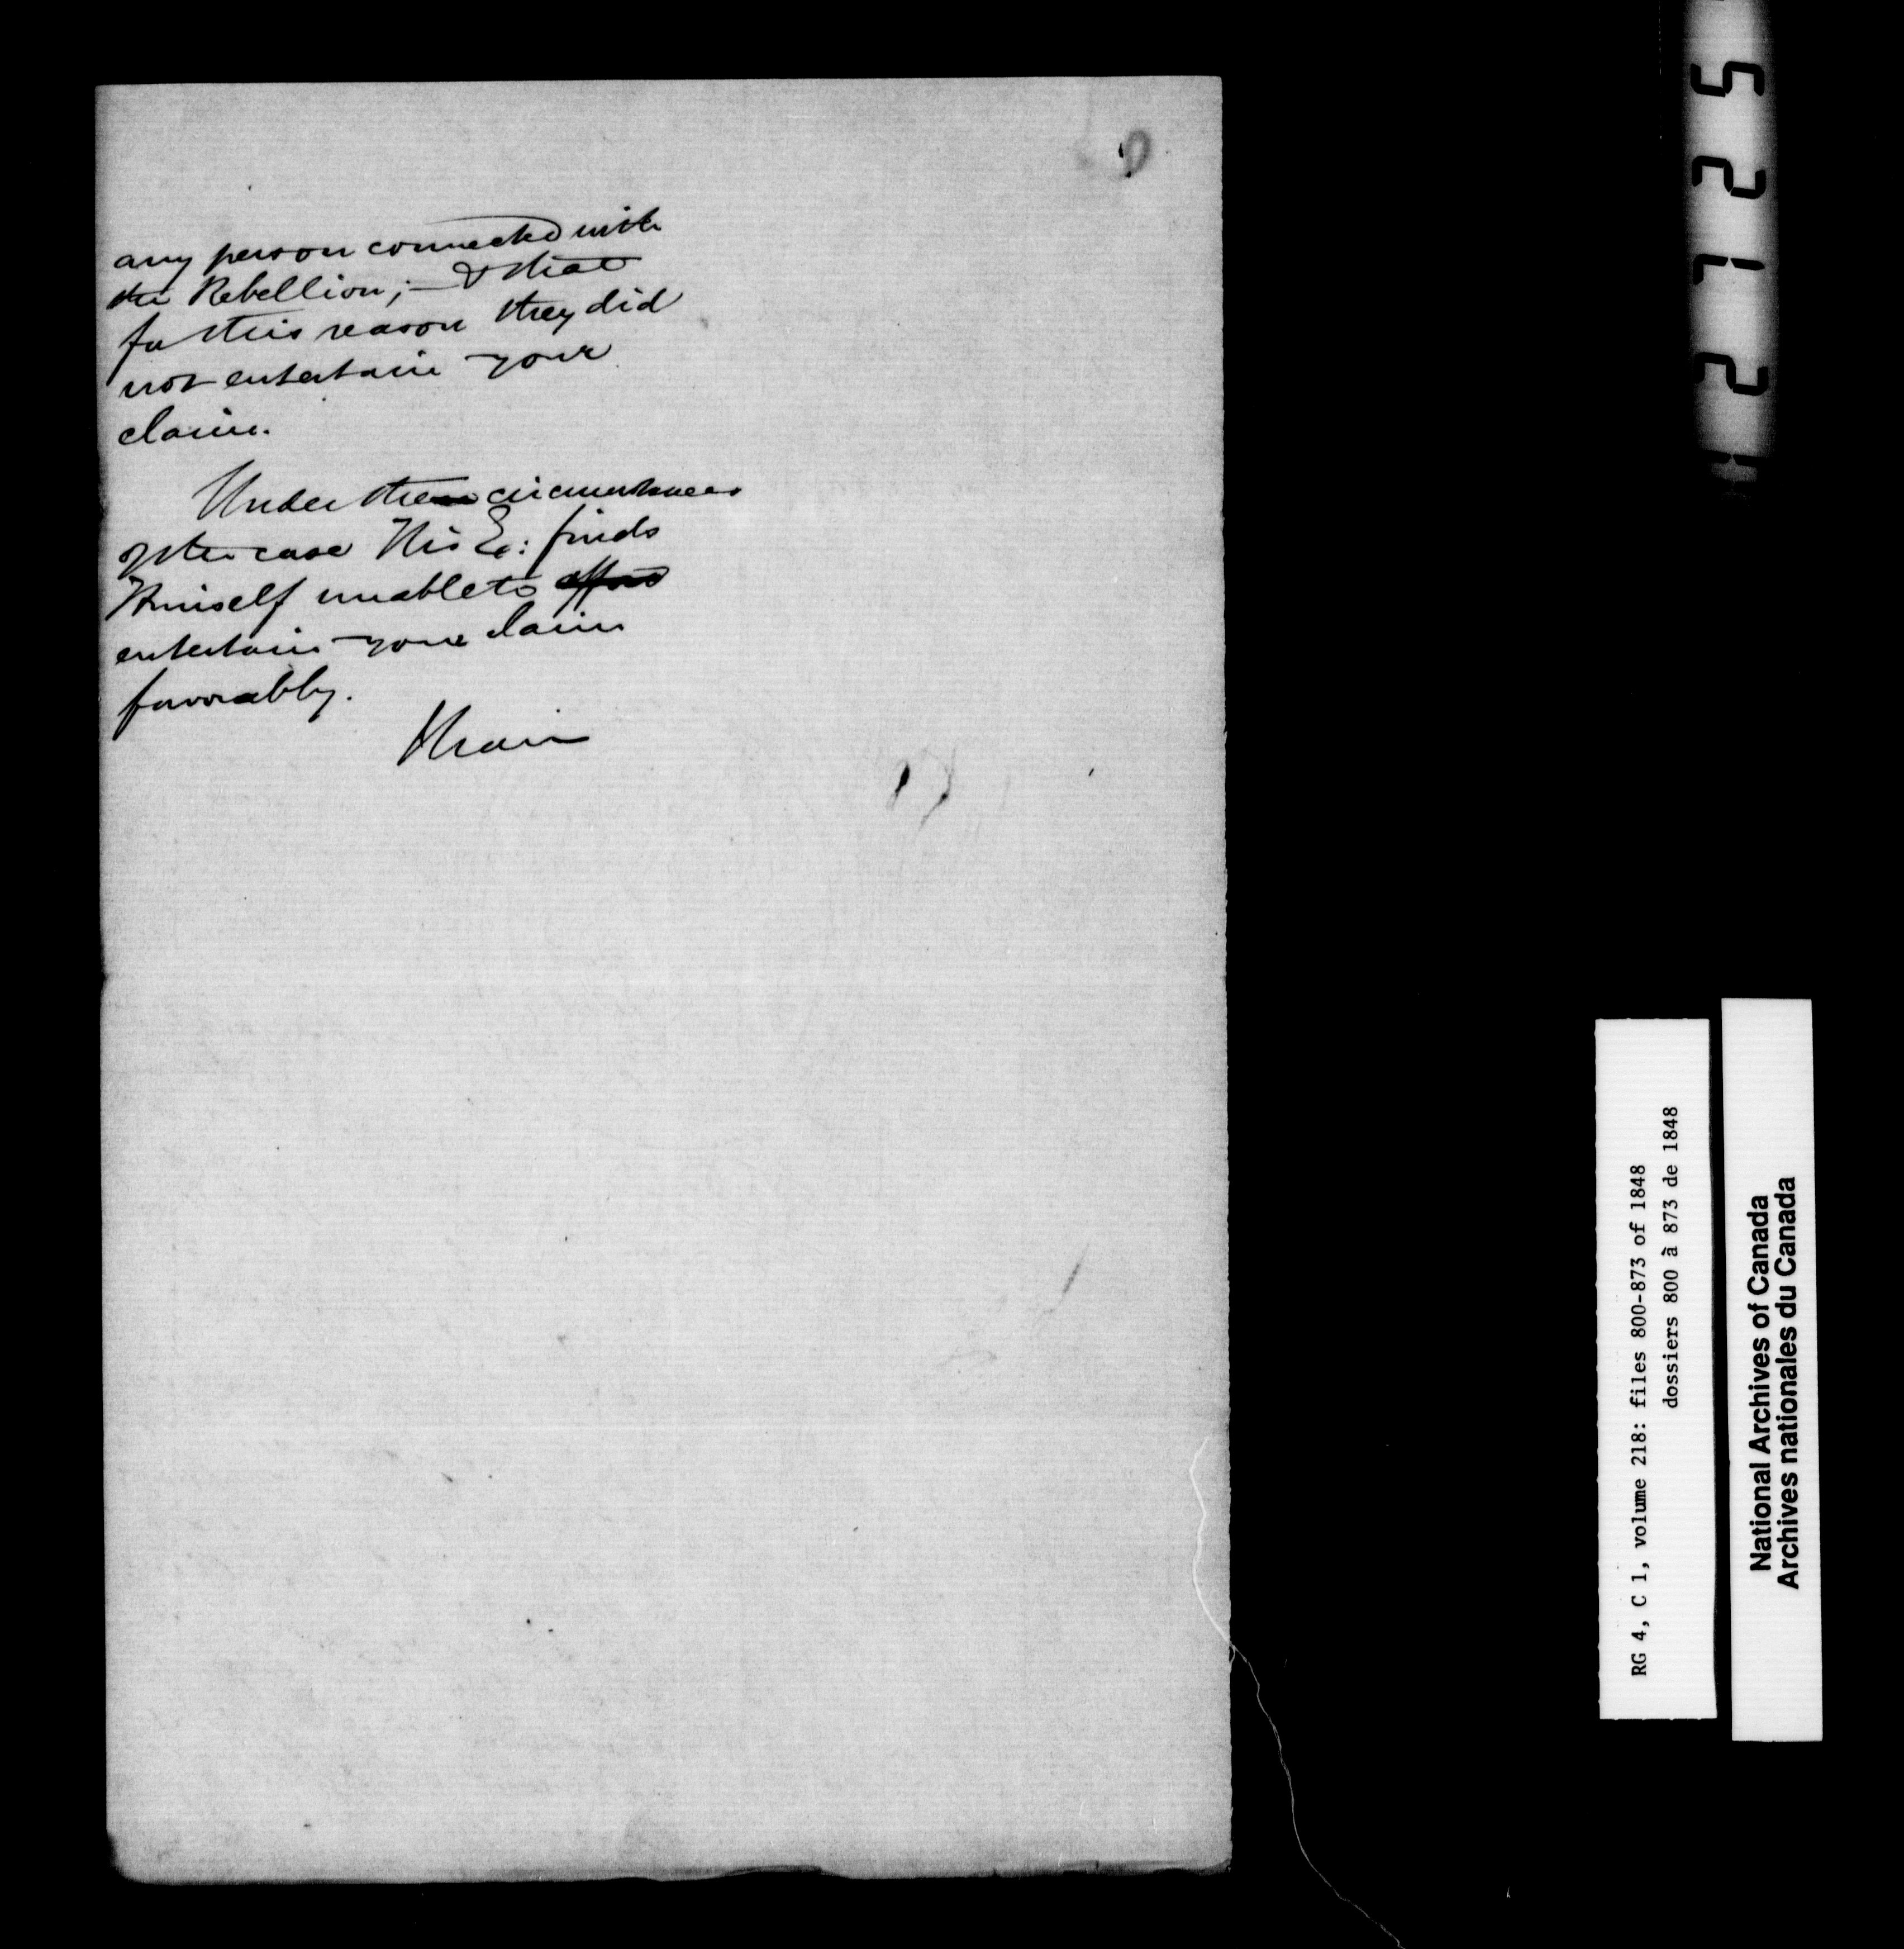 any person connected with
the Rebellion; — & that
for this reason they did
not entertain your
claim.
Under the circumstances
of the case His E: finds
Himself unable to afford
entertain your claim
favorably.
I have
2 7 1 2 5
RG 4, C 1, volume 218: files 800-873 of 1848
dossiers 800 à 873 de 1848
National Archives of Canada
Archives nationales du Canada